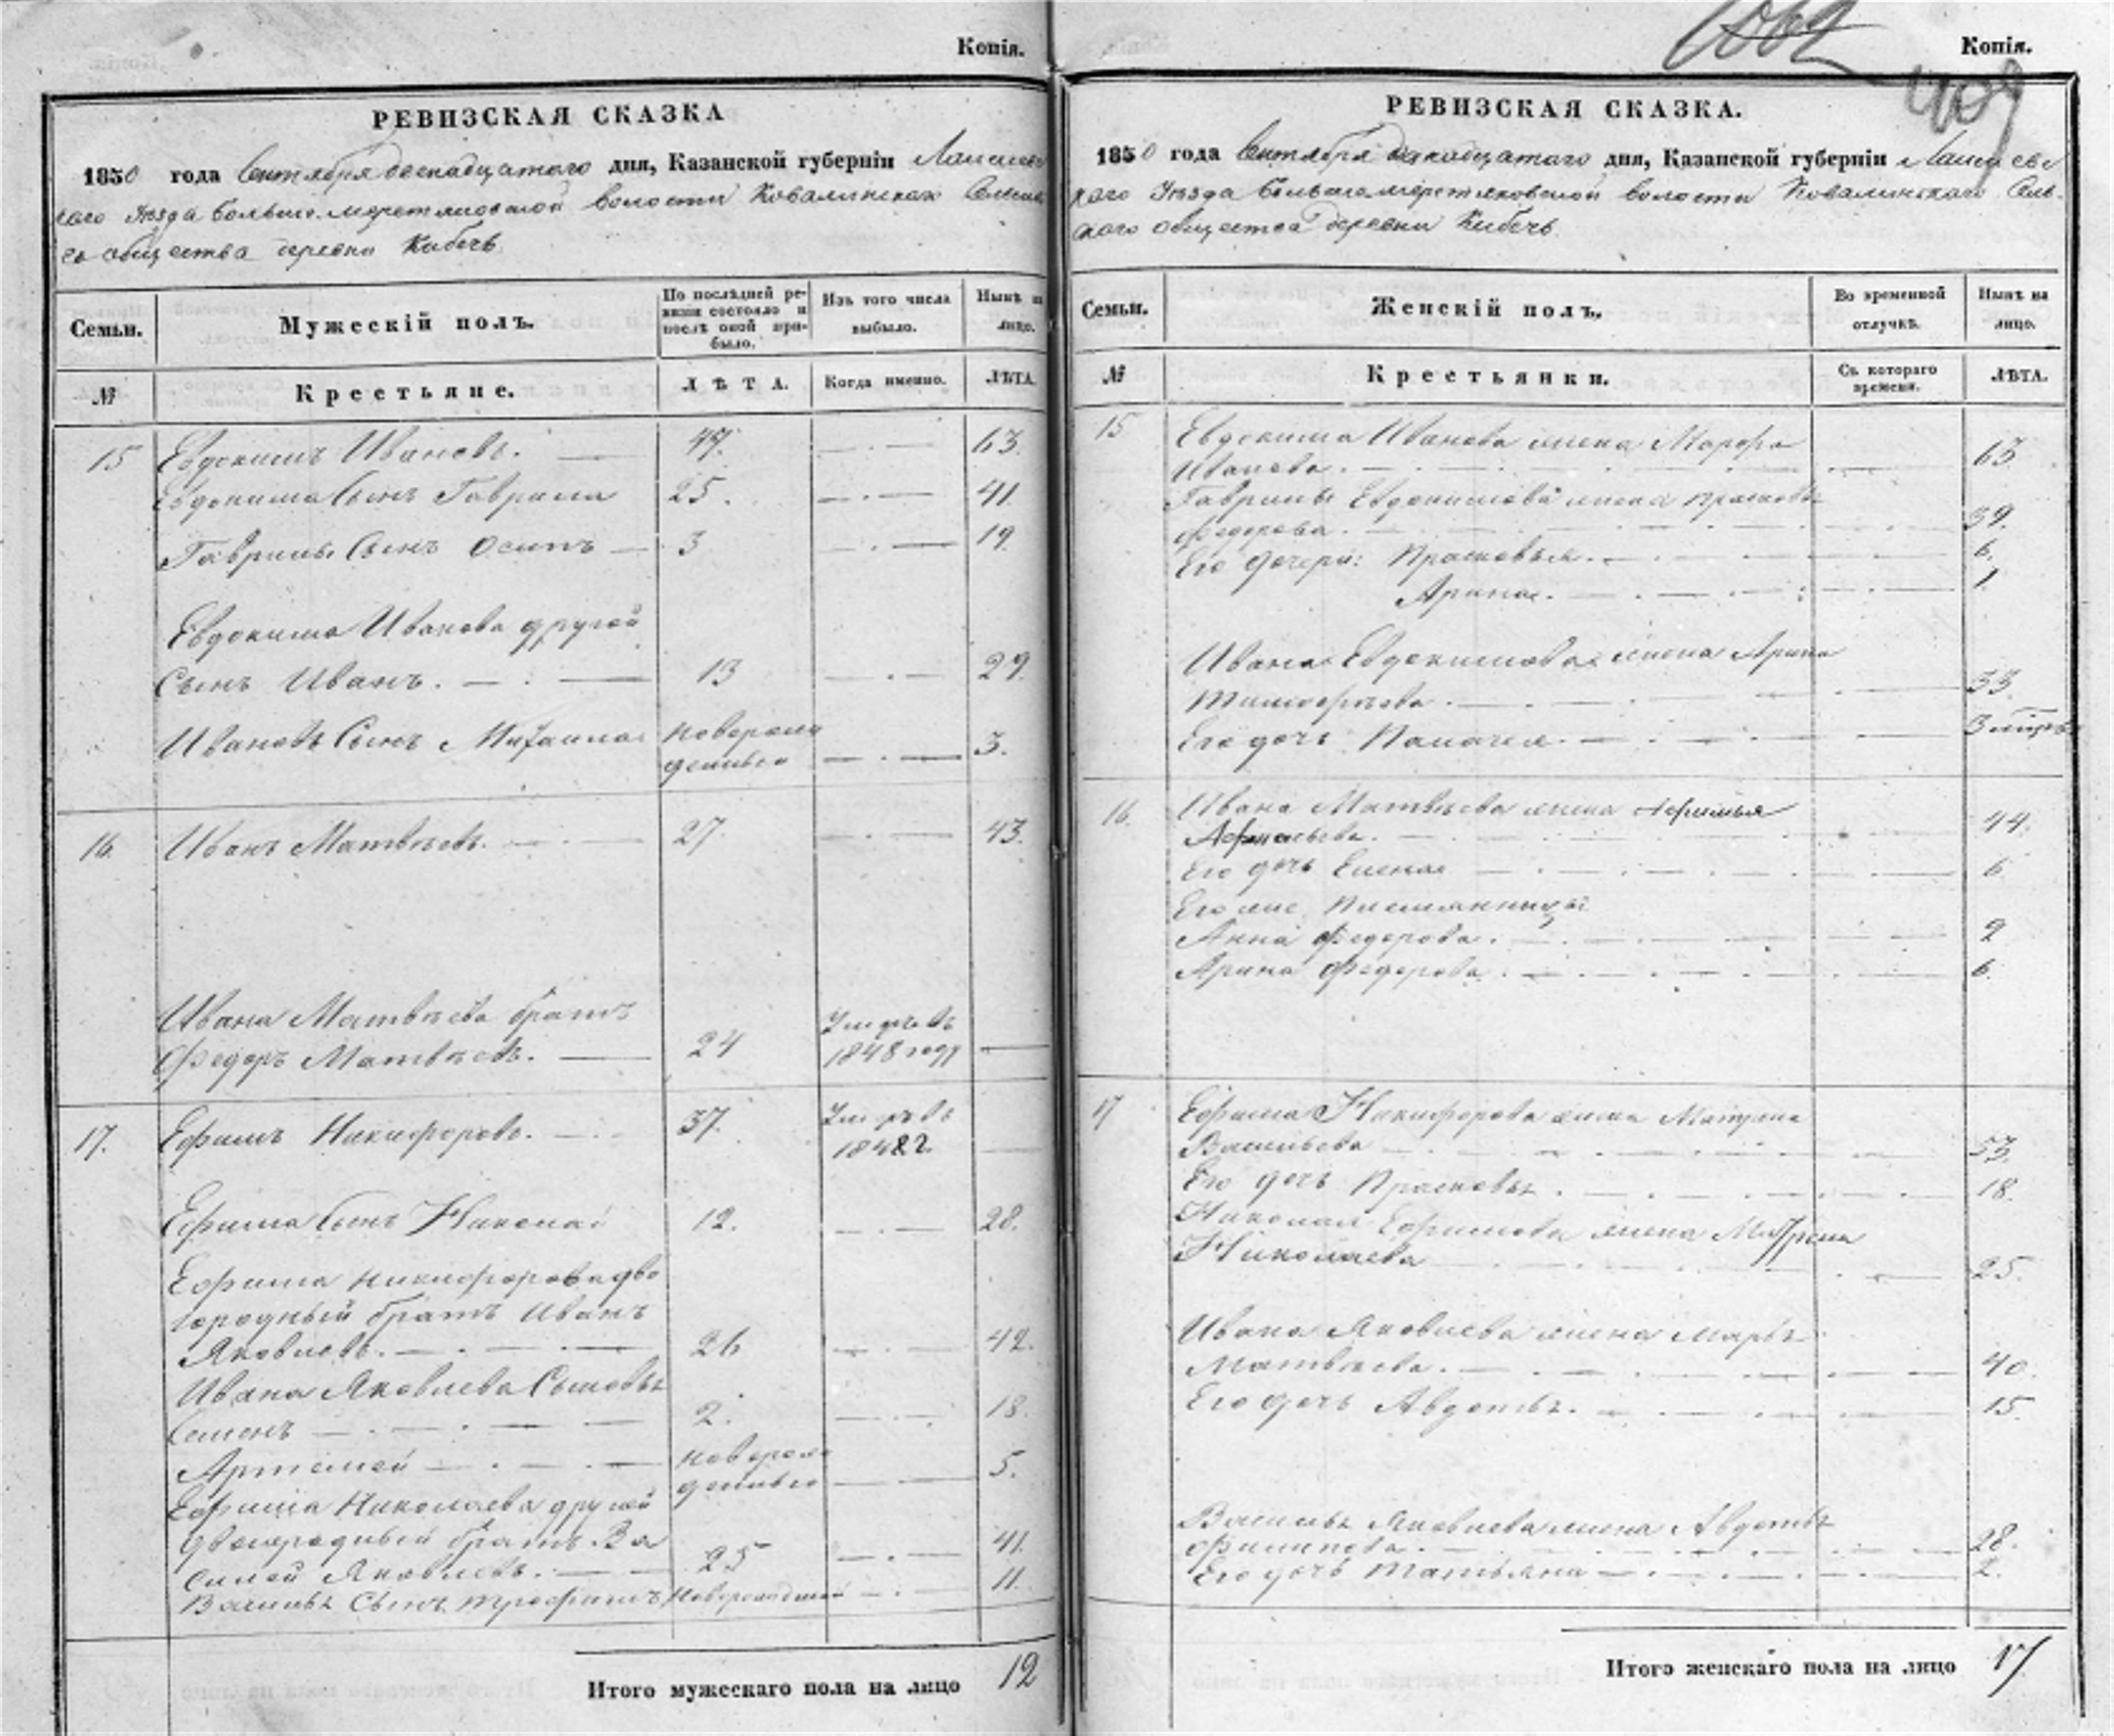 Копія.
РЕВИЗСКАЯ СКАЗКА
1850 года Сентября двенадцатаго дня, Казанской губерніи Лаишев
каго Уѣзда Больше-меретяковской волости Ковалинскаго Сельск
го общества деревни Кибечь
Семьи.
Мужескій полъ.
По послѣдней ре-
визіи состояло и
послѣ оной при-
было.
Изъ того числа
выбыло.
Нынѣ на
лицо.
№
Крестьяне.
ЛѢТА.
Когда именно.
ЛѢТА.
15 Евдокимъ Ивановъ. 47. 63.
Евдокима Сынъ Гаврила 25. 41.
Гаврилы Сынъ Осипъ 3 19.
Евдокима Иванова другой
Сынъ Иванъ. 13 29.
Ивановъ Сынъ Михаила новорож
денъ 3.
16. Иванъ Матвѣевъ. 27. 43.
Ивана Матвѣева братъ
Федоръ Матвѣевъ. 24 Умеръ въ
1848 году
17. Ефимъ Никифоровъ. 37. Умеръ въ
1848 г.
Ефима Сынъ Николай 12. 28.
Ефима Никифорова дво
юродный братъ Иванъ
Яковлевъ. 26 42.
Ивана Яковлева Сыновья
Семенъ 2. 18.
Артемей новорож
5.
Ефима Николаева другой
двоюродный братъ Ва
силей Яковлевъ. 25 41.
Василья Сынъ Трофимъ 11.
Итого мужескаго пола на лицо 12
Копія.
1069
409
РЕВИЗСКАЯ СКАЗКА.
1850 года Сентября двенадцатаго дня, Казанской губерніи Лаишевс
каго Уѣзда Больше-меретяковской волости Ковалинскаго Сель-
скаго общества деревни Кибечь.
Семьи.
Женскій полъ.
Во временной
отлучкѣ.
Нынѣ на
лицо.
№
Крестьянки.
Съ котораго
времени.
ЛѢТА.
15 Евдокима Иванова жена Марфа
Иванова. 63.
Гаврилы Евдокимова жена Прасковья
Федорова. 39.
Его дочери: Прасковья. 6.
Арина. 1.
Ивана Евдокимова жена Арина
Тимофеева. 33.
Его дочь Палагея. 3 мѣсяц
16. Ивана Матвѣева жена Афимья
Афанасьева. 44.
Его дочь Елена 6
Его же племянницы
Анна Федорова. 9
Арина Федорова. 6
17 Ефима Никифорова жена Матрена
Васильева 53.
Его дочь Прасковья. 18.
Николая Ефимова жена Матрена
Николаева 25.
Ивана Яковлева жена Марья
Матвѣева. 40.
Его дочь Авдотья. 15.
Василья Яковлева жена Авдотья
Филипова. 28.
Его дочь Татьяна 2.
Итого женскаго пола на лицо 17